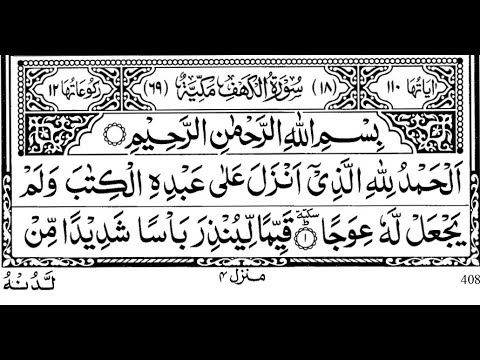 اٰیَاتُهَا ١١٠ (١٨) سُوْرَةُ الْكَهْفِ مَكِّیَّةٌ (٦٩) رُكُوْعَاتُهَا ١٢
بِسْمِ اللهِ الرَّحْمٰنِ الرَّحِیْمِ
اَلْحَمْدُ لِلّٰهِ الَّذِیْۤ اَنْزَلَ عَلٰی عَبْدِهِ الْكِتٰبَ وَلَمْ
یَجْعَلْ لَّهٗ عِوَجًا ٚ سكتة ط ١ قَیِّمًا لِّیُنْذِرَ بَاْسًا شَدِیْدًا مِّنْ
لَّدُنْهُ
منزل ۴
408